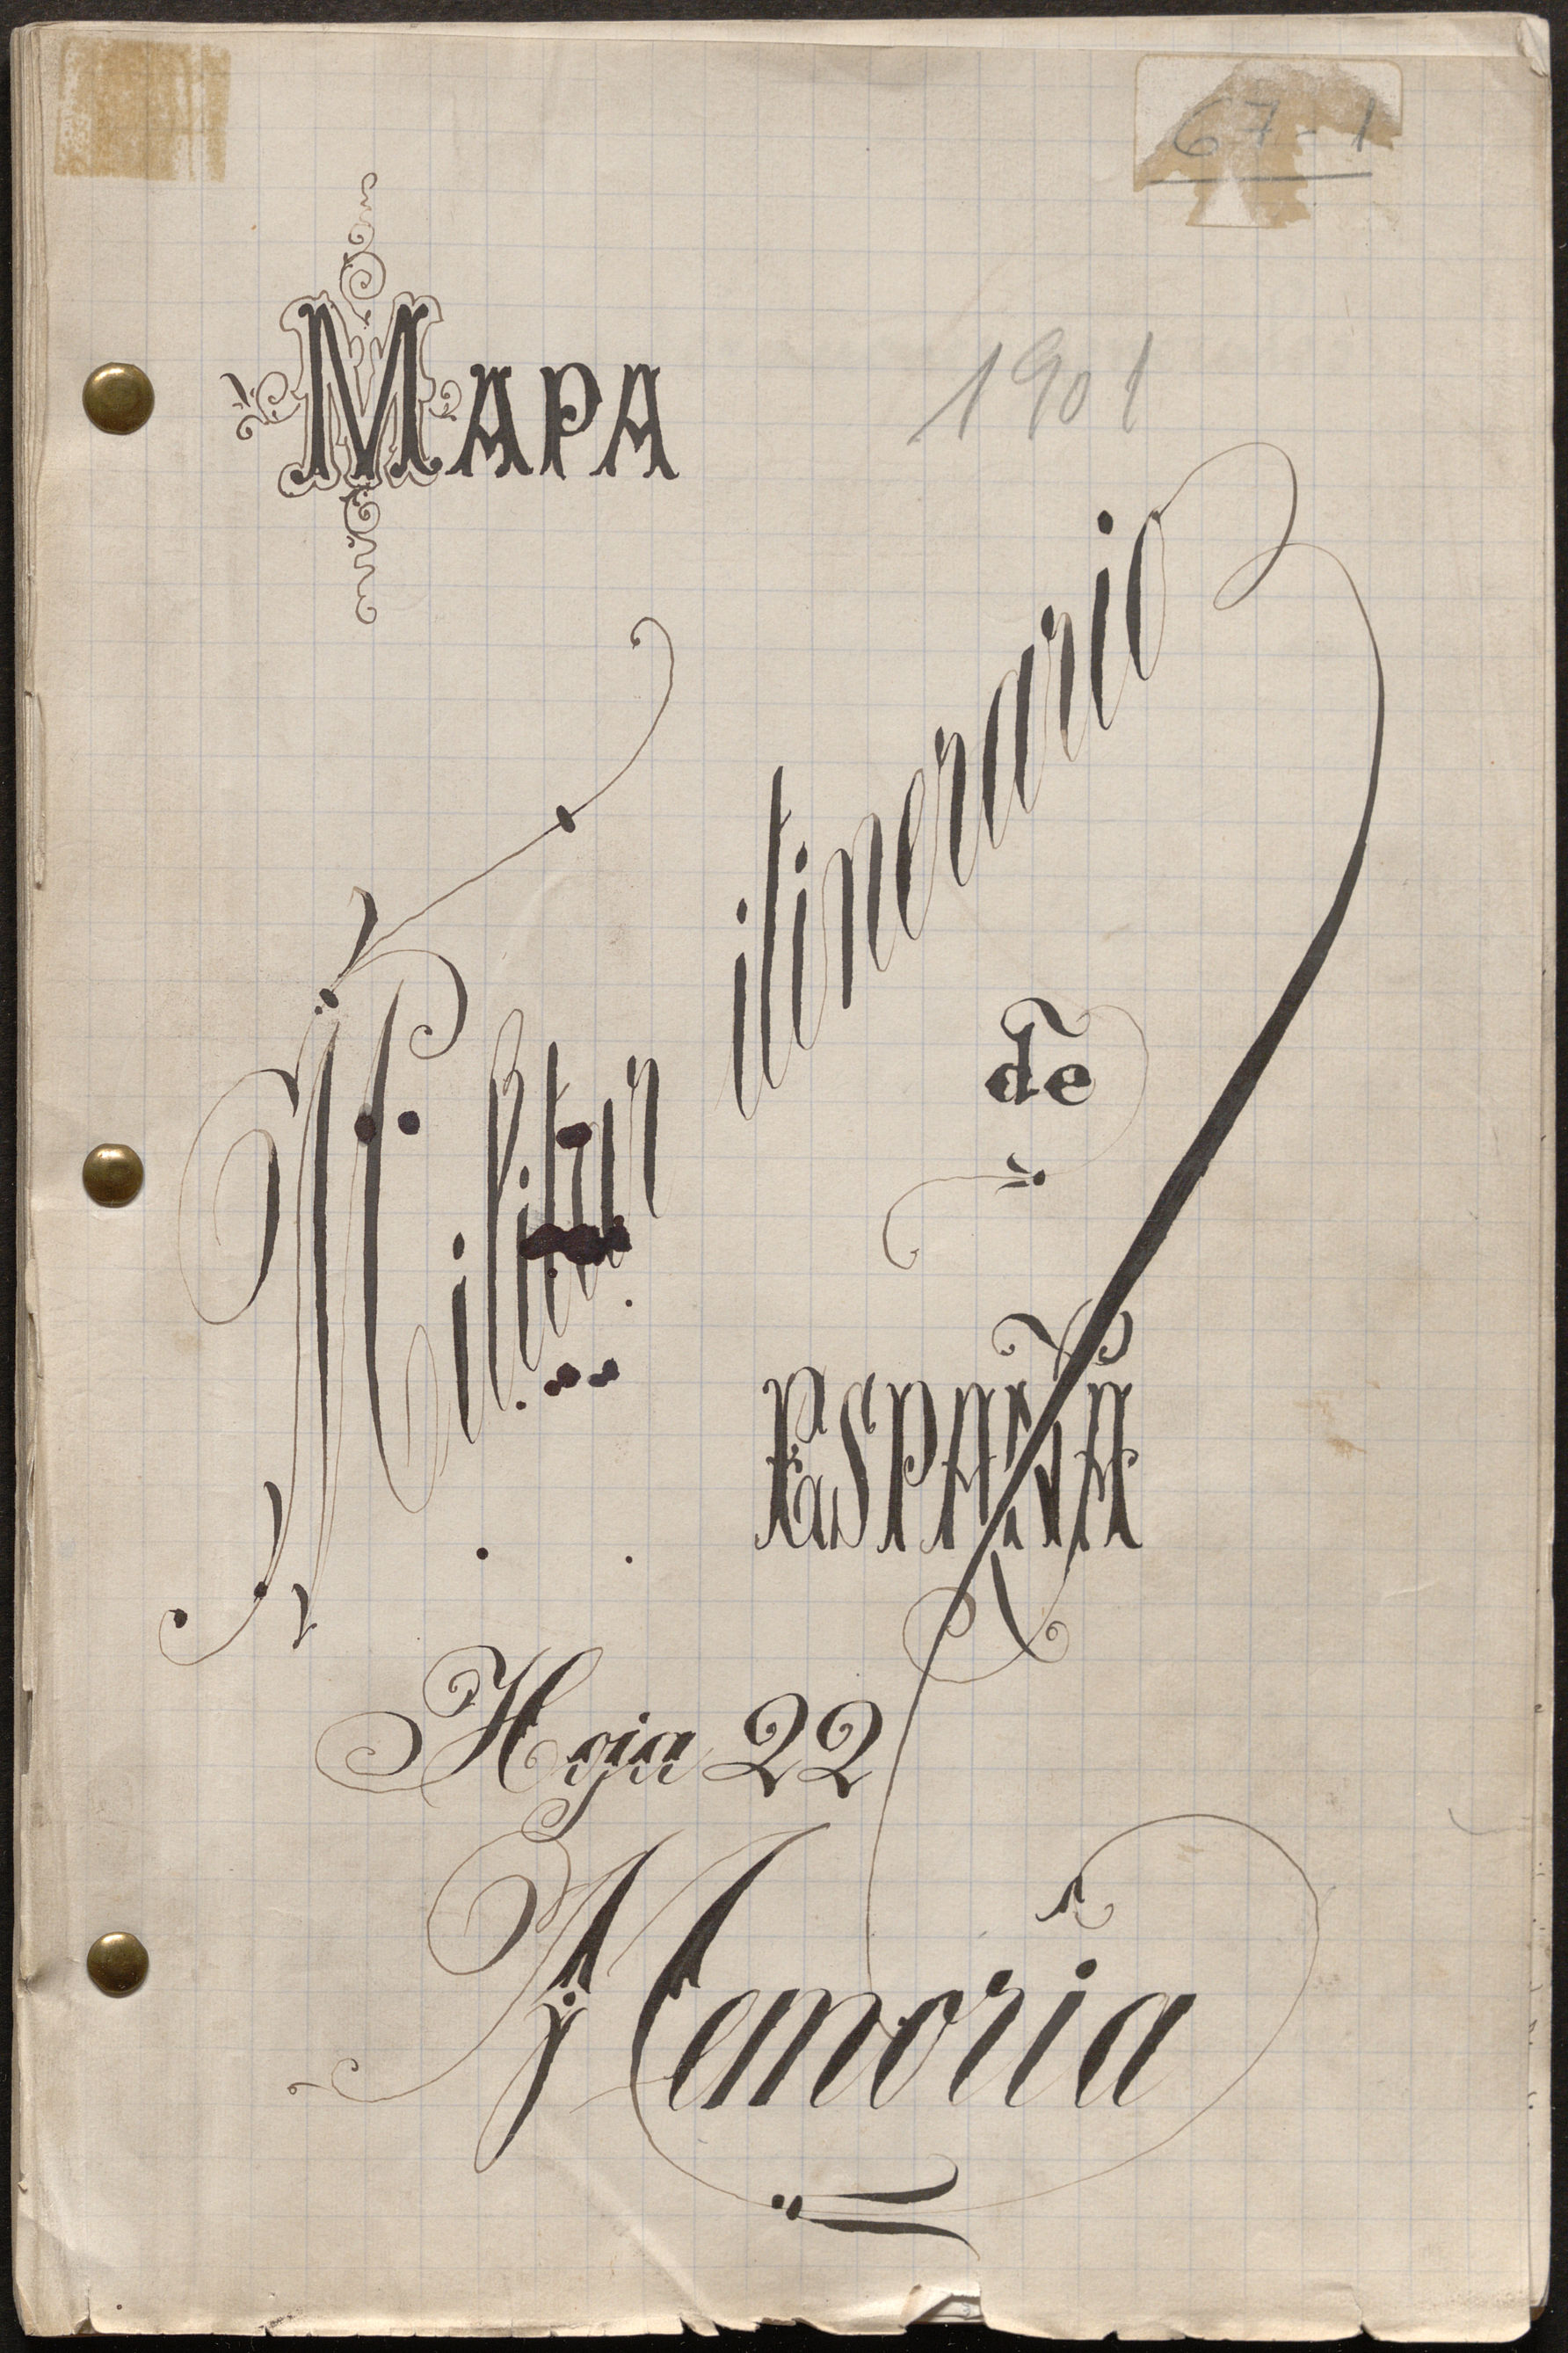 67-1
1901
MAPA
Militar itinerario
de
ESPAÑA
Hoja 22
Memoria